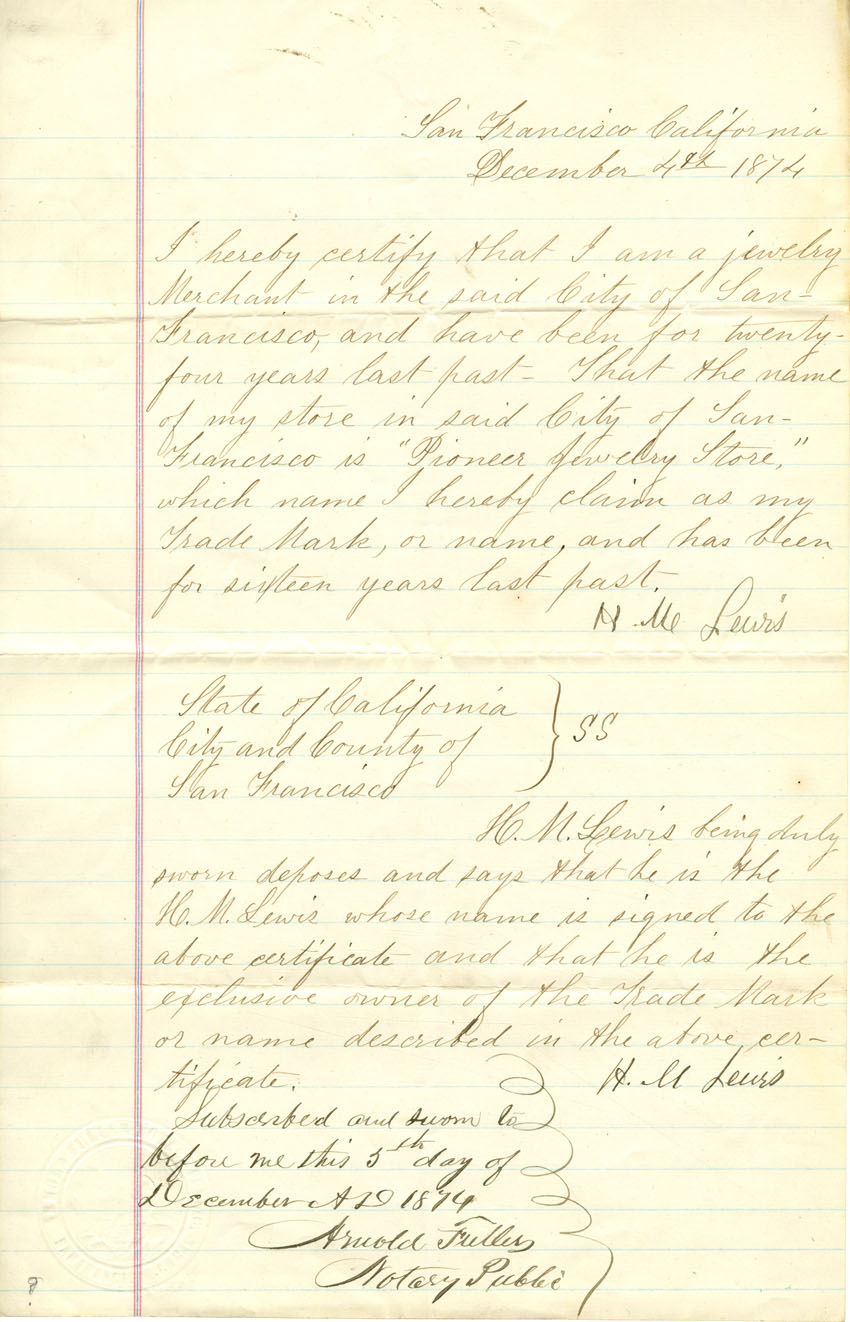 San Francisco California
December 4th 1874
I hereby certify that I am a jewelry
Merchant in the said City of San-
Francisco, and have been for twenty-
four years last past- That the name
of my store in said City of San-
Francisco is "Pioneer Jewelry Store,"
which name I hereby claim as my
Trade Mark, or name, and has been
for sixteen years last past.
H. M. Lewis
State of California
City and County of } SS
San Francisco
H. M. Lewis being duly
sworn deposes and says that he is the
H. M. Lewis whose name is signed to the
above certificate and that he is the
exclusive owner of the Trade Mark
or name described in the above cer-
tificate.
H. M Lewis
Subscribed and sworn to
before me this 5th day of
December AD 1874
Arnold Fuller
Notary Public